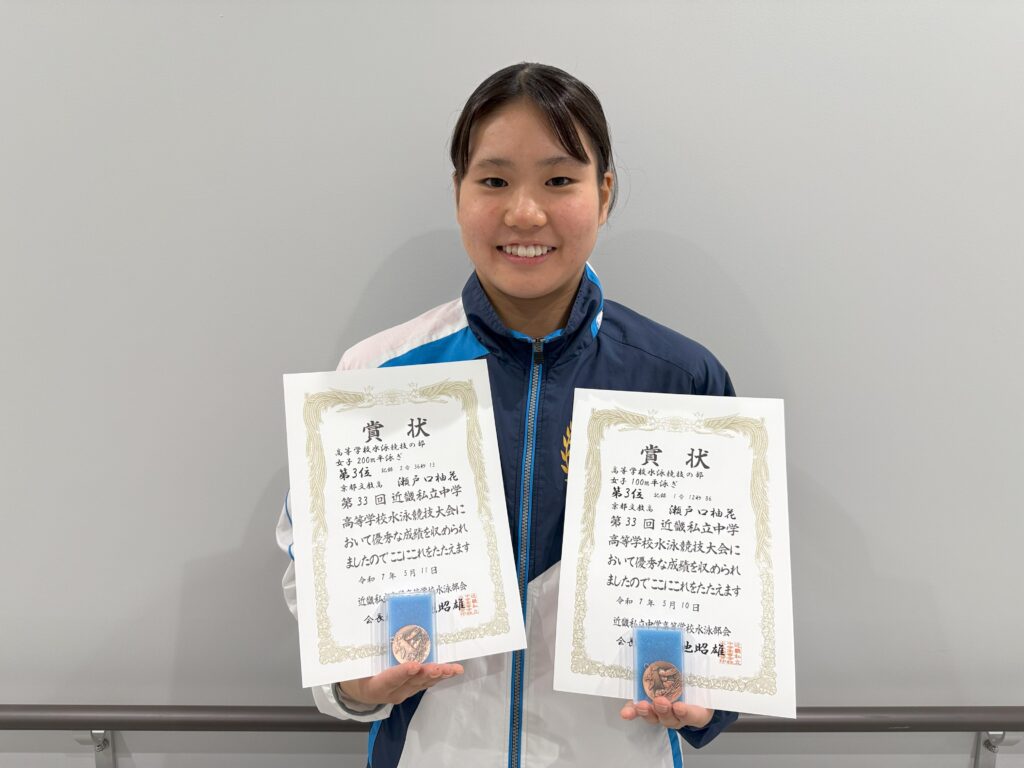 賞状
高等学校水泳競技の部
女子 200m平泳ぎ
第3位 記録 2分 36秒 13
京都文教高 瀬戸口柚花
第33回近畿私立中学
高等学校水泳競技大会に
おいて優秀な成績を収められ
ましたのでここにこれをたたえます
令和 7 年 5 月 11 日
近畿私立 高等学校水泳部会
会長 昭雄
賞状
高等学校水泳競技の部
女子 100m平泳ぎ
第3位 記録 1分 12秒 86
京都文教高 瀬戸口柚花
第33回近畿私立中学
高等学校水泳競技大会に
おいて優秀な成績を収められ
ましたのでここにこれをたたえます
令和 7 年 5 月 10 日
近畿私立中学高等学校水泳部会
会長 昭雄